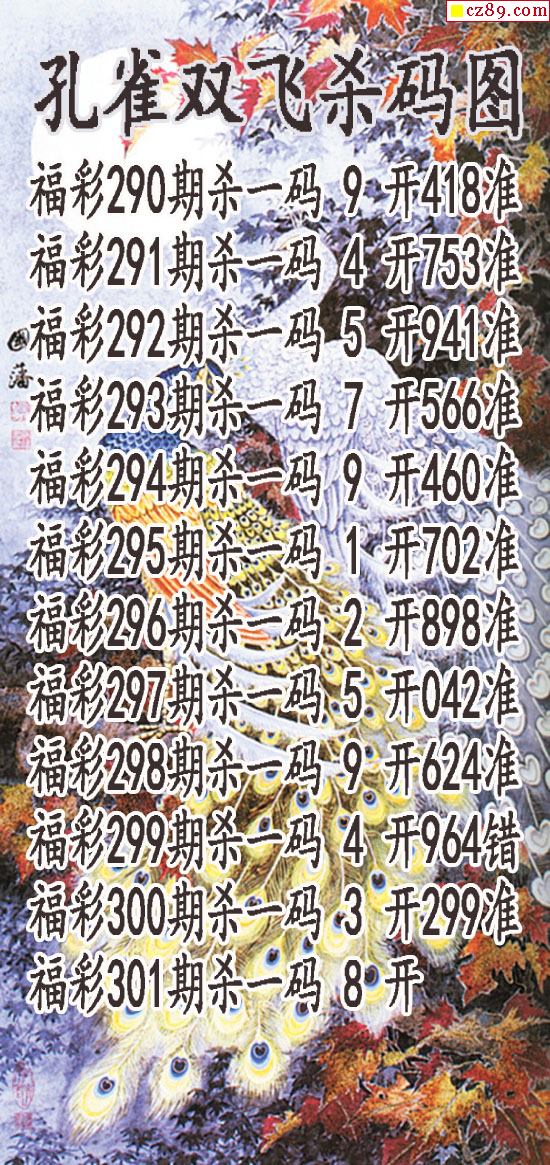 cz89.com
孔雀双飞杀码图
福彩290期杀一码 9 开418准
福彩291期杀一码 4 开753准
福彩292期杀一码 5 开941准
福彩293期杀一码 7 开566准
福彩294期杀一码 9 开460准
福彩295期杀一码 1 开702准
福彩296期杀一码 2 开898准
福彩297期杀一码 5 开042准
福彩298期杀一码 9 开624准
福彩299期杀一码 4 开964错
福彩300期杀一码 3 开299准
福彩301期杀一码 8 开
國藩